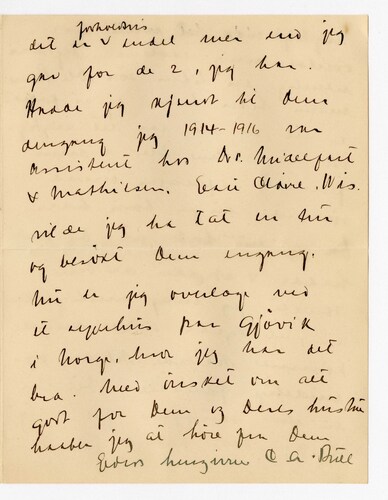 forholdsvis
det er v endel mer end jeg
gav for de 2, jeg har.
Hadde jeg kjendt til Dem
dengang jeg 1914-1916 var
assistent hos Dr. Midelfart
& Mathiesen, Eau Claire, Wis.
vilde jeg ha tat en tur
og besøkt Dem engang.
Nu er jeg overlæge ved
et sykehus paa Gjøvik
i Norge, hvor jeg har det
bra. Med ønsket om alt
godt for Dem og Deres hustru
haaber jeg at høre fra Dem
Deres hengivne C A